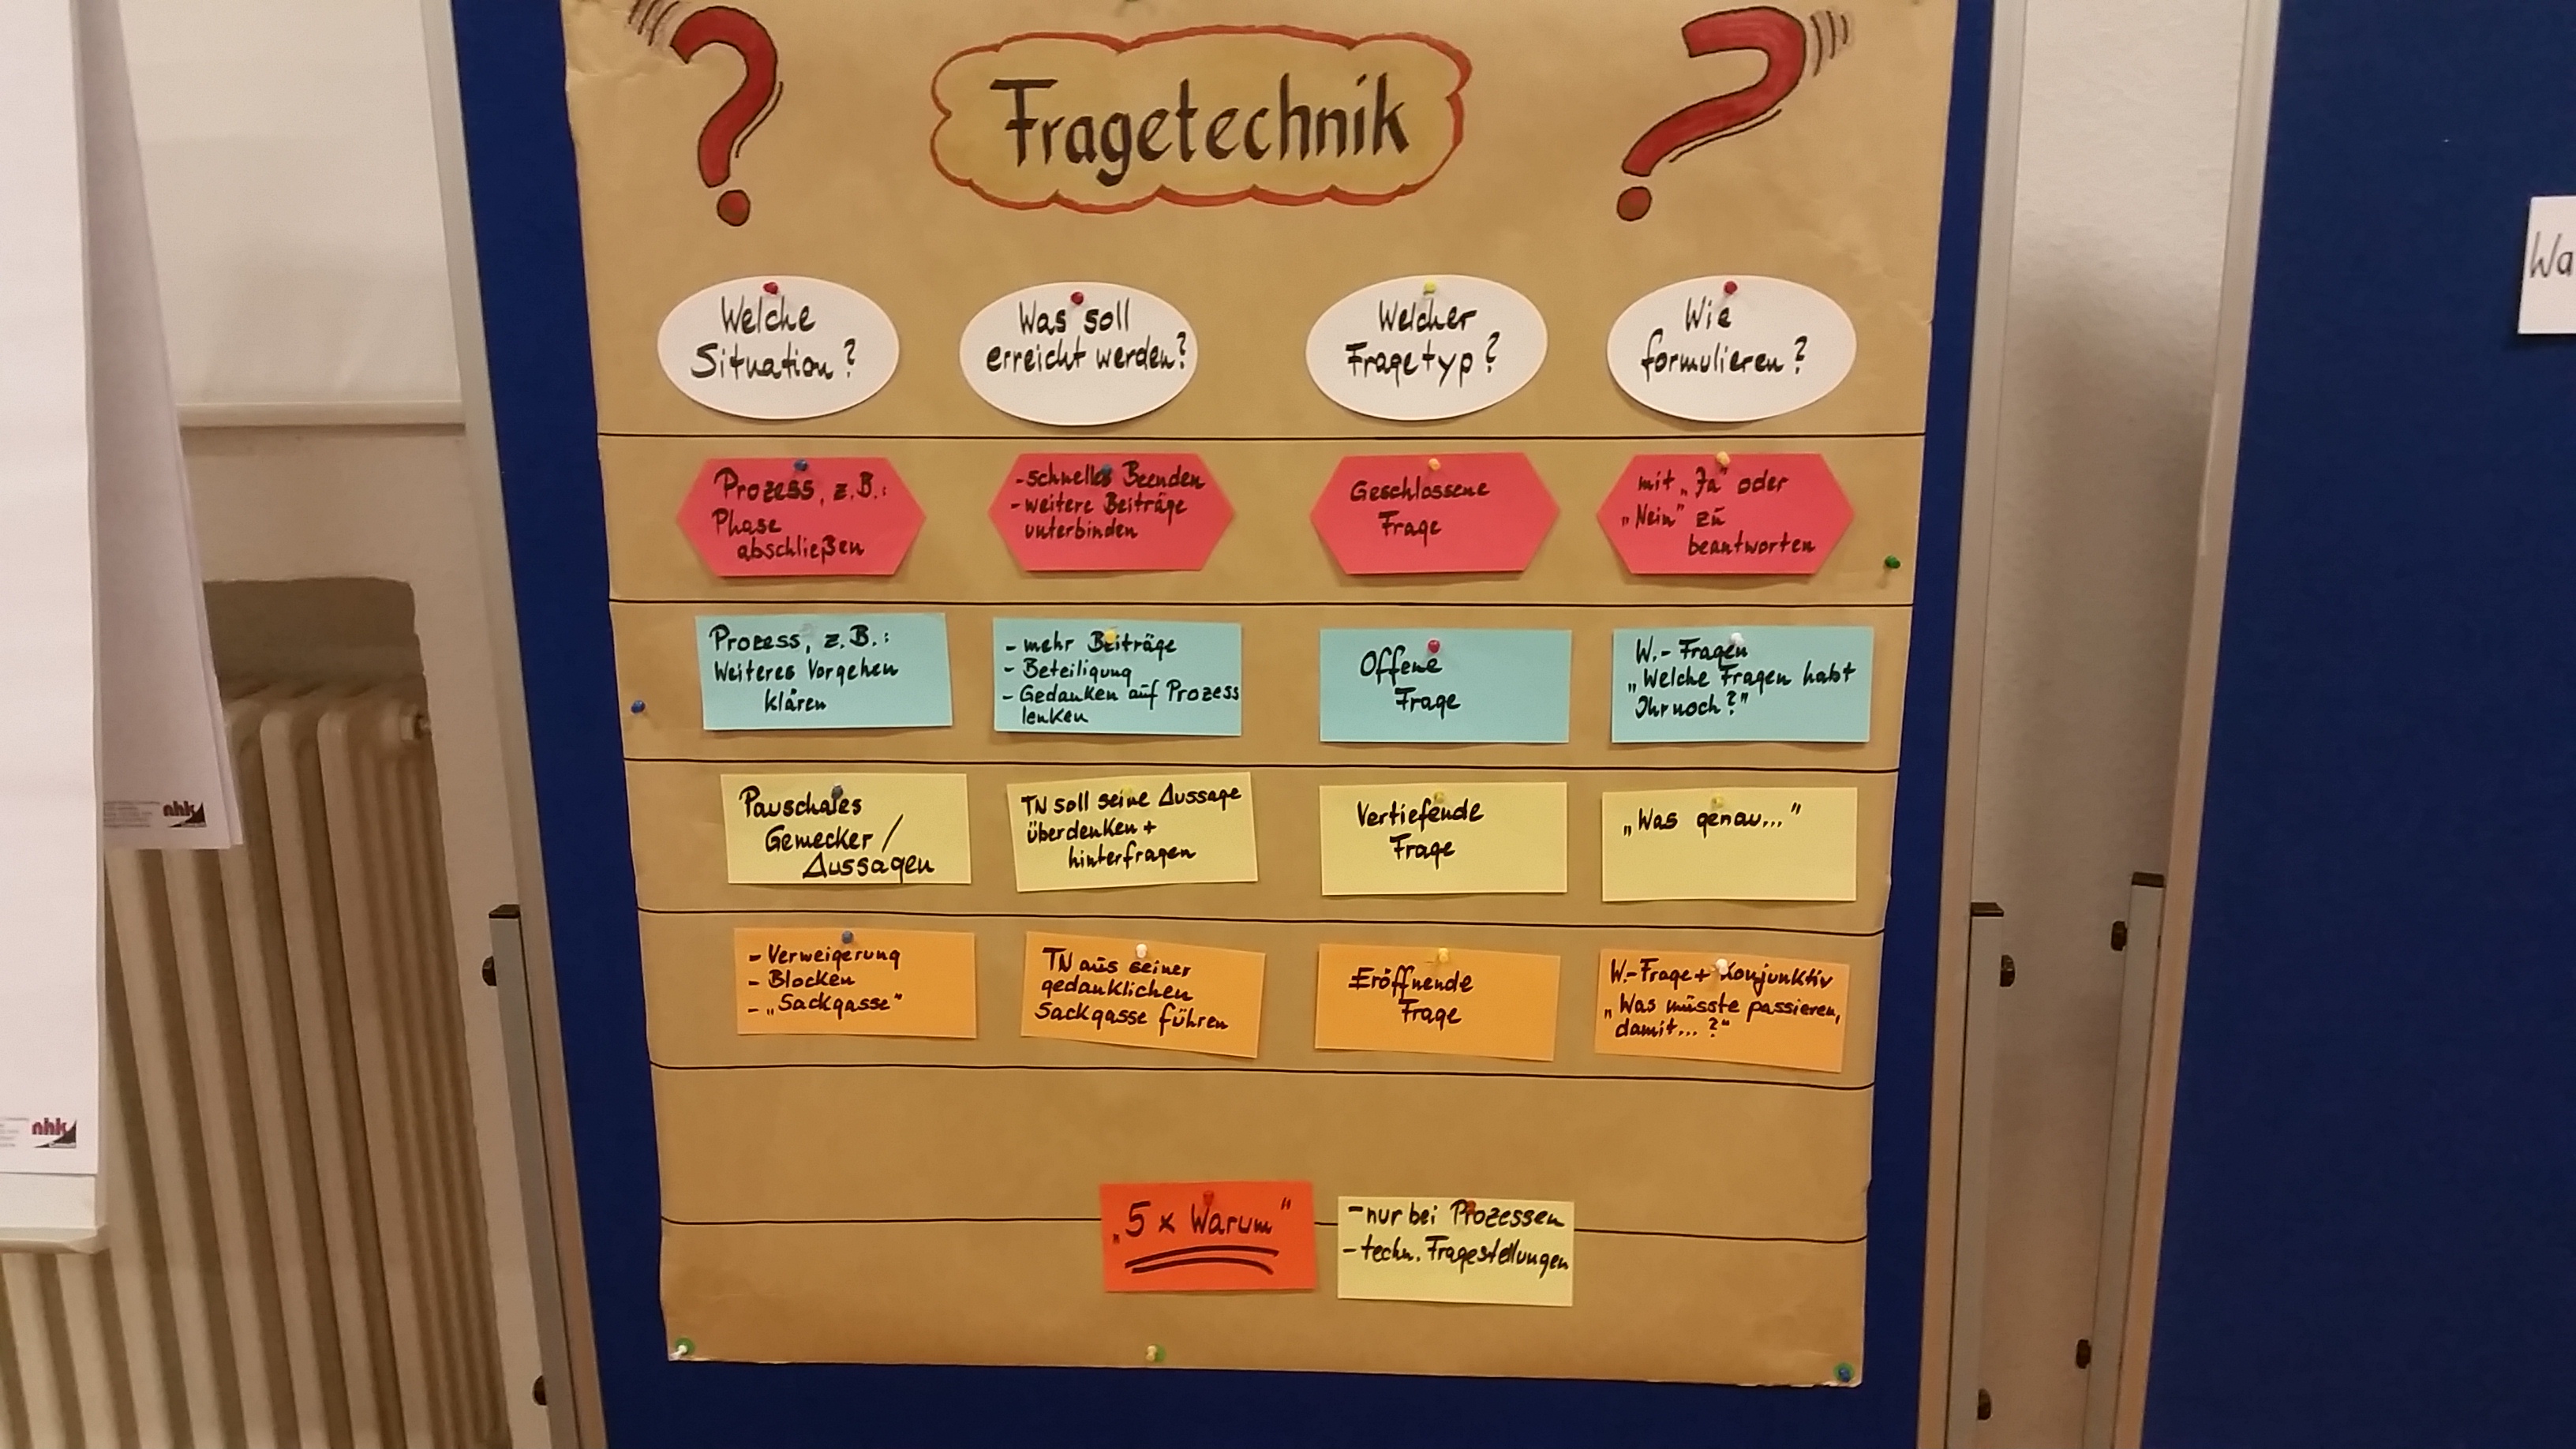 Fragetechnik
Welche
Situation?
Was soll
erreicht werden?
Welcher
Fragetyp?
Wie
formulieren?
Prozess, z.B.:
Phase
abschließen
- schnelles Beenden
- weitere Beiträge
unterbinden
Geschlossene
Frage
mit „Ja" oder
„Nein" zu
beantworten
Prozess, z.B.:
Weiteres Vorgehen
klären
- mehr Beiträge
- Beteiligung
- Gedanken auf Prozess
lenken
Offene
Frage
W.-Fragen
„Welche Fragen habt
Ihr noch?"
Pauschales
Gemecker/
Aussagen
TN soll seine Aussage
überdenken +
hinterfragen
Vertiefende
Frage
„Was genau..."
- Verweigerung
- Blocken
- „Sackgasse"
TN aus seiner
gedanklichen
Sackgasse führen
Eröffnende
Frage
W.-Frage + Konjunktiv
„Was müsste passieren,
damit...?"
„5 x Warum"
- nur bei Prozessen
- techn. Fragestellungen
Wa
nhk
nhk